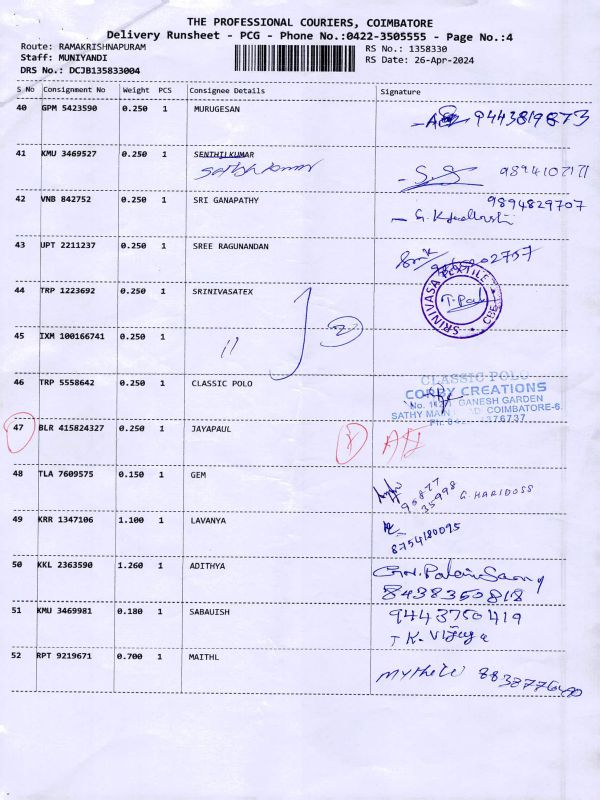 THE PROFESSIONAL COURIERS, COIMBATORE
Delivery Runsheet - PCG - Phone No.:0422-3505555 - Page No.:4
Route: RAMAKRISHNAPURAM
Staff: MUNIYANDI
DRS No.: DCJB135833004
RS No.: 1358330
RS Date: 26-Apr-2024
S No Consignment No Weight PCS Consignee Details Signature
40 GPM 5423590 0.250 1 MURUGESAN 9443819873
41 KMU 3469527 0.250 1 SENTHILKUMAR
42 VNB 842752 0.250 1 SRI GANAPATHY 9894829707
43 UPT 2211237 0.250 1 SREE RAGUNANDAN
44 TRP 1223692 0.250 1 SRINIVASATEX
SRINIVASA TEXTILE CBE
45 IXM 100166741 0.250 1 11
2
46 TRP 5558642 0.250 1 CLASSIC POLO
CLASSIC POLO
CREATIONS
GANESH GARDEN
SATHY MAIN COIMBATORE-6.
47 BLR 415824327 0.250 1 JAYAPAUL
48 TLA 7609575 0.150 1 GEM
95877
35998 G HARIDOSS
49 KRR 1347106 1.100 1 LAVANYA
8754180095
50 KKL 2363590 1.260 1 ADITHYA
8438350818
51 KMU 3469981 0.180 1 SABAUISH 9443750419
T K. Vijaya
52 RPT 9219671 0.700 1 MAITHL